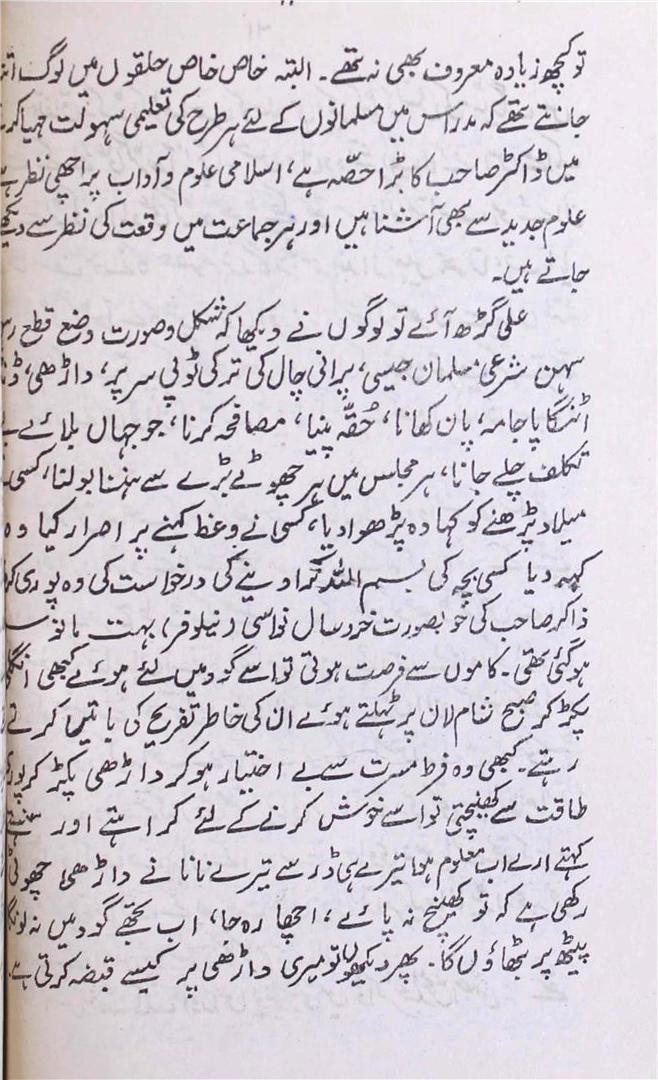 تو کچھ زیادہ معروف بھی نہ تھے۔ البتہ خاص خاص حلقوں میں لوگ
جانتے تھے کہ مدراس میں مسلمانوں کے لئے ہر طرح کی تعلیمی سہولت مہیا
میں ڈاکٹر صاحب کا بڑا حصّہ ہے، اسلامی علوم و آداب پر اچھی نظر
علوم جدید سے بھی آشنا ہیں اور ہر جماعت میں وقعت کی نظر سے
جاتے ہیں۔
علی گڑھ آئے تو لوگوں نے دیکھا کہ شکل و صورت وضع قطع
سہن شرعی مسلمان جیسی، پرانی چال کی ترکی ٹوپی سر پر، داڑھی،
اٹنگا پاجامہ، پان کھانا، حُقّہ پینا، مصافحہ کرنا، جو جہاں بلائے
تکلف چلے جانا، ہر مجلس میں ہر چھوٹے بڑے سے ہنسنا بولنا، کسی
میلاد پڑھنے کو کہا وہ پڑھوا دیا، کسی نے وعظ کہنے پر اصرار کیا وہ
کہہ دیا کسی بچہ کی بسم اللہ کرا دینے کی درخواست کی وہ پوری
ذاکر صاحب کی خوبصورت خرد سال نواسی (نیلوفر) بہت مانوس
ہو گئی تھی۔ کاموں سے فرصت ہوتی تو اسے گود میں لئے ہوئے کبھی
پکڑ کر صبح شام لان پر ٹہلتے ہوئے ان کی خاطر تفریح کی باتیں کرتے
رہتے۔ کبھی وہ فرط مسرت سے بے اختیار ہو کر داڑھی پکڑ کر
طاقت سے کھینچتی تو اسے خوش کرنے کے لئے کراہتے اور ہنستے
کہتے ارے اب معلوم ہوا تیرے ہی ڈر سے تیرے نانا نے داڑھی چھوٹی
رکھی ہے کہ تو کھینچ نہ پائے، اچھا رہ جا، اب تجھے گود میں نہ لونگا
پیٹھ پر بٹھاؤں گا۔ پھر دیکھوں تو میری داڑھی پر کیسے قبضہ کرتی ہے